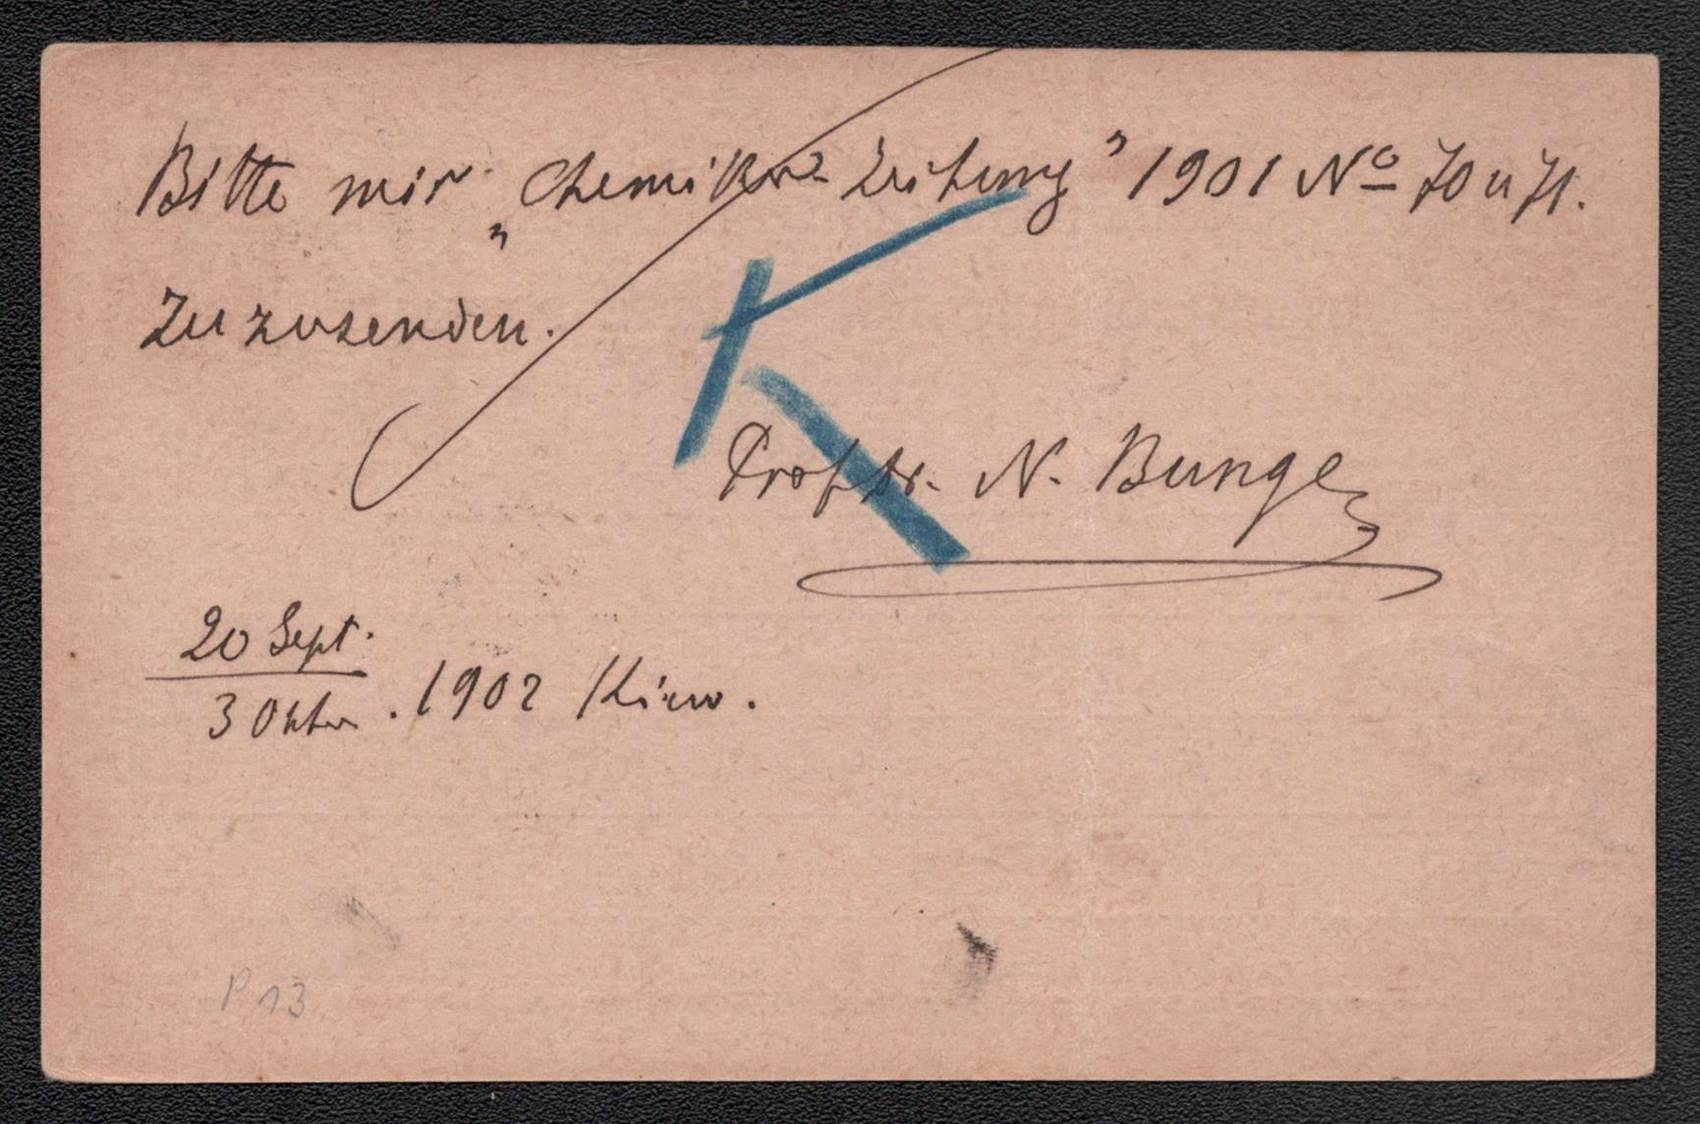 Bitte mir „Chemiker-Zeitung” 1901 No 70 u 71.
zuzusenden.
K
Prof Dr. N. Bunge
20 Sept.
3 Oktbr . 1902 Kiew.
P 13